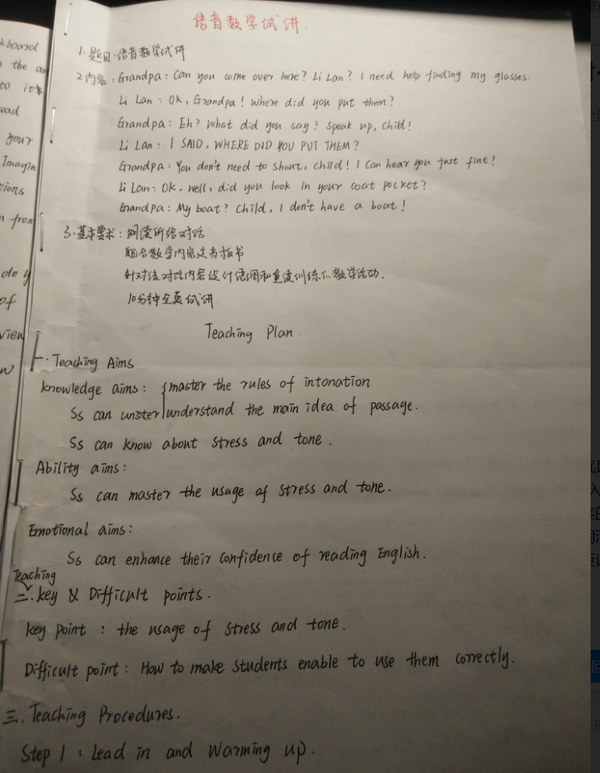 语音教学试讲
kboard
1.题目:语音教学试讲
the
2.内容:Grandpa: Can you come over here? Li Lan? I need help finding my glasses.
to it
Li Lan: Ok, Grandpa! Where did you put them?
ead
Grandpa: Eh? What did you say? Speak up, child!
your
Li Lan: I SAID, WHERE DID YOU PUT THEM?
Imagin
Grandpa: You don't need to shout, child! I can hear you just fine!
tions
Li Lan: Ok, well, did you look in your coat pocket?
from
Grandpa: My boat? Child, I don't have a boat!
3.基本要求:朗读所给对话
配合教学内容适当板书
do y
针对该对话内容设计语调和重读训练的教学活动.
of
10分钟全英试讲
view
Teaching Plan
w
一.Teaching Aims
knowledge aims: master the rules of intonation
Ss can understand the main idea of passage.
Ss can know about stress and tone.
Ability aims:
Ss can master the usage of stress and tone.
Emotional aims:
Ss can enhance their confidence of reading English.
Teaching
二.key & Difficult points.
key point: the usage of stress and tone.
Difficult point: How to make students enable to use them correctly.
三.Teaching Procedures.
Step 1: Lead in and Warming up.